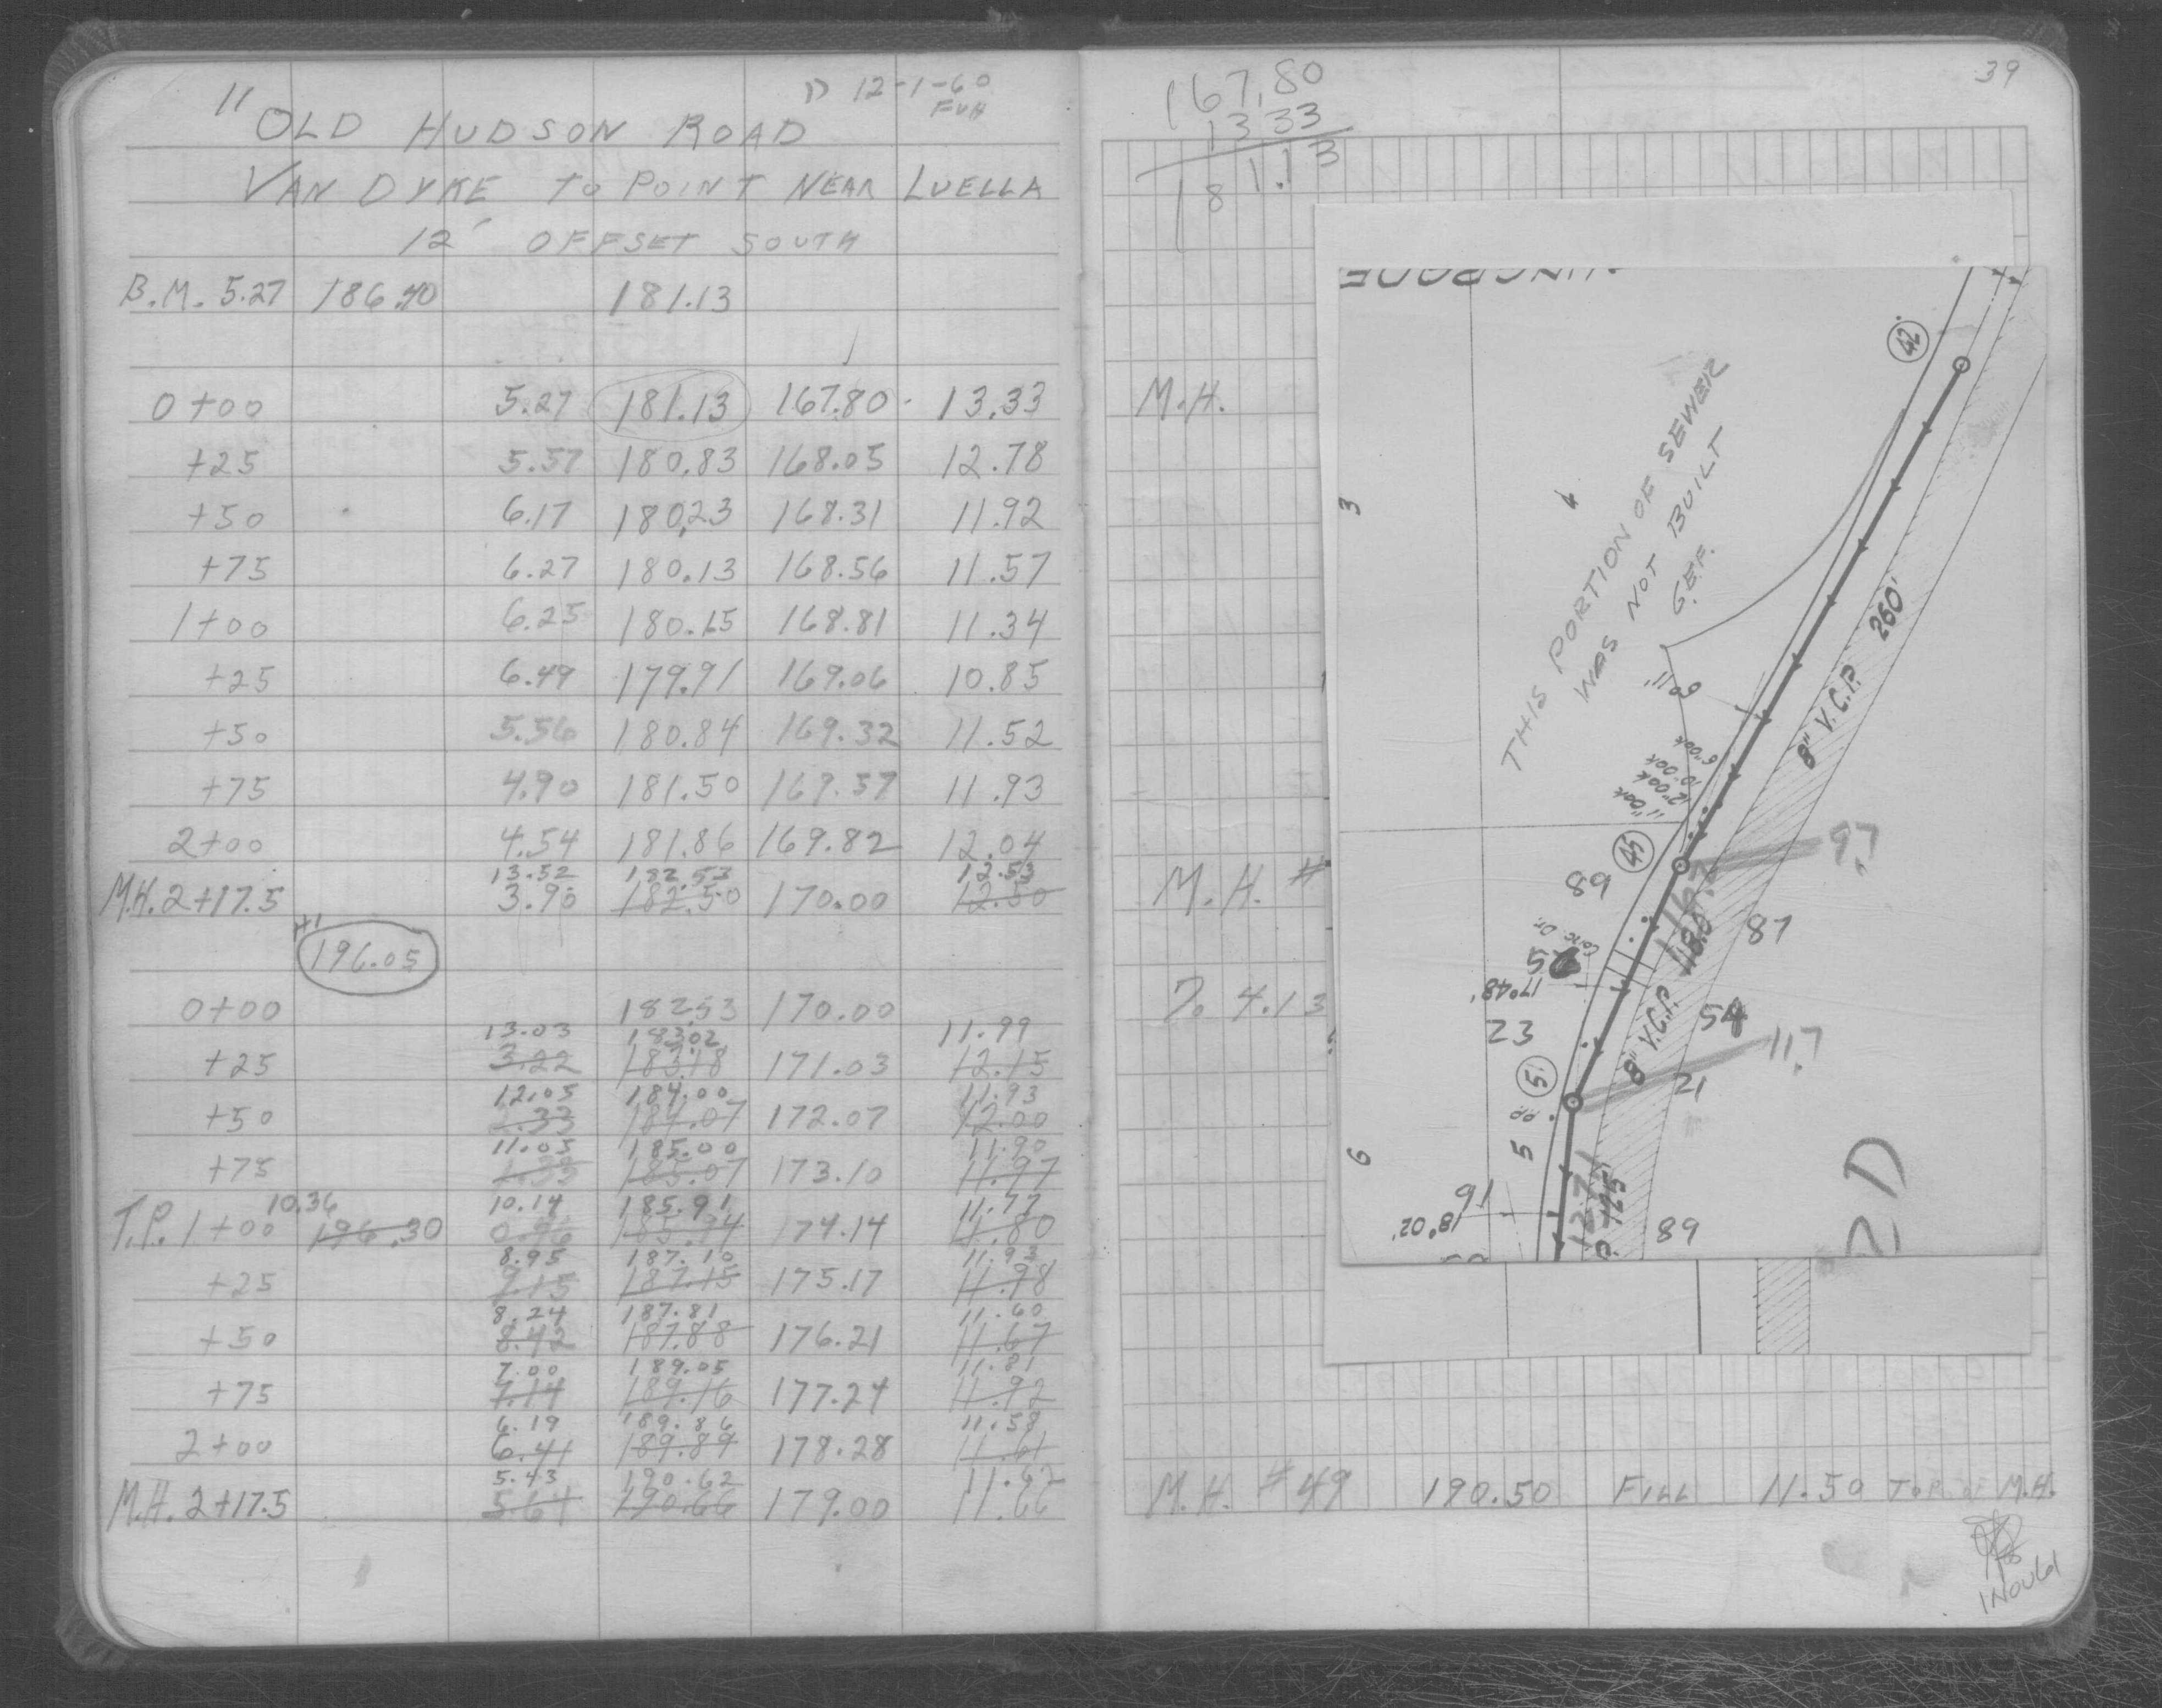 11
12-1-60
FVH
OLD HUDSON ROAD
VAN DYKE TO POINT NEAR LUELLA
12' OFFSET SOUTH
B.M. 5.27 186.40 181.13
0+00 5.27 181.13 167.80 13.33
+25 5.57 180.83 168.05 12.78
+50 6.17 180.23 168.31 11.92
+75 6.27 180.13 168.56 11.57
1+00 6.25 180.15 168.81 11.34
+25 6.49 179.91 169.06 10.85
+50 5.56 180.84 169.32 11.52
+75 4.90 181.50 169.57 11.93
2+00 4.54 181.86 169.82 12.04
13.52 182.53 12.53
M.H. 2+17.5 3.90 182.50 170.00 12.50
HI
196.05
0+00 182.53 170.00
13.03 183.02 11.99
+25 3.22 183.18 171.03 12.15
12.05 184.00 11.93
+50 2.33 184.07 172.07 12.00
11.05 185.00 11.90
+75 1.33 185.07 173.10 11.97
10.36 10.14 185.91 11.77
T.P. 1+00 196.30 0.46 185.94 174.14 11.80
8.95 187.10 11.93
+25 9.15 187.15 175.17 11.98
8.24 187.81 11.60
+50 8.42 187.88 176.21 11.67
7.00 189.05 11.81
+75 7.14 189.16 177.24 11.92
6.19 189.86 11.58
2+00 6.41 189.89 178.28 11.61
5.43 190.62 11.62
M.H. 2+17.5 5.64 190.66 179.00 11.66
39
167.80
13 33
181.13
M.H.
M. H. #
4.13
M.H. #49 190.50 FILL 11.50 TOP OF M.H.
42
THIS PORTION OF SEWER
WAS NOT BUILT
G.E.F.
3
260'
8" V.C.P.
6"11'
6"oak
10"oak
12"oak
11"oak
45
9.7
89
87
118.0
Conc. Dr.
25
17°48'
23
54
8" V.C.P.
11.7
51
21
P.P.
5
6
127.1
125'
91
18°02'
89
2D